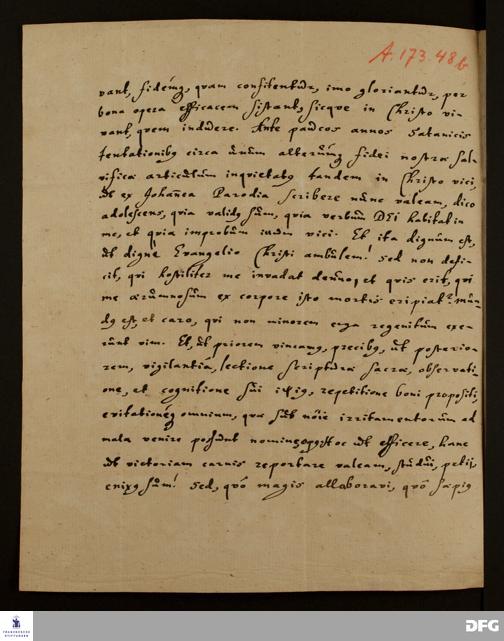 A. 173. 48b
vant, fidemq, quam confitentur, imo gloriantur, per
bona opera efficacem sistant, sicque in Christo vi-
vant, quem induere. Ante paucos annos Satanicis
tentationibus circa unum alterumq fidei nostrae sal-
vificae articulum inquietatus tandem in Christo vici,
ut ex Johannea Parodia scribere nunc valeam, dico
adolescens, quia validus sum, quia verbum DEi habitat in
me, et quia improbum vici. Et ita dignum est,
ut digne Evangelio Christi ambulem! Sed non defi-
cit, qui hostiliter me invadat denuo, et quis erit, qui
me aerumnosum ex corpore isto mortis eripiat? mun-
dus est, et caro, qui non minorem erga regenitum exe-
runt vim. Et, ut priorem vincamus, precibus, ut posterio-
rem, vigilantia, lectione scripturae sacrae, observati-
one, et cognitione sui ipsius, repetitione boni propositi,
evitationeq omnium, quae sub noie irritamentorum ad
mala venire possunt Hoc ut efficere, hanc
ut victoriam carnis reportare valeam, studui, petij,
enixus sum! Sed, quo magis allaboravi, quo saepius
FRANCKESCHE
STIFTUNGEN
DFG